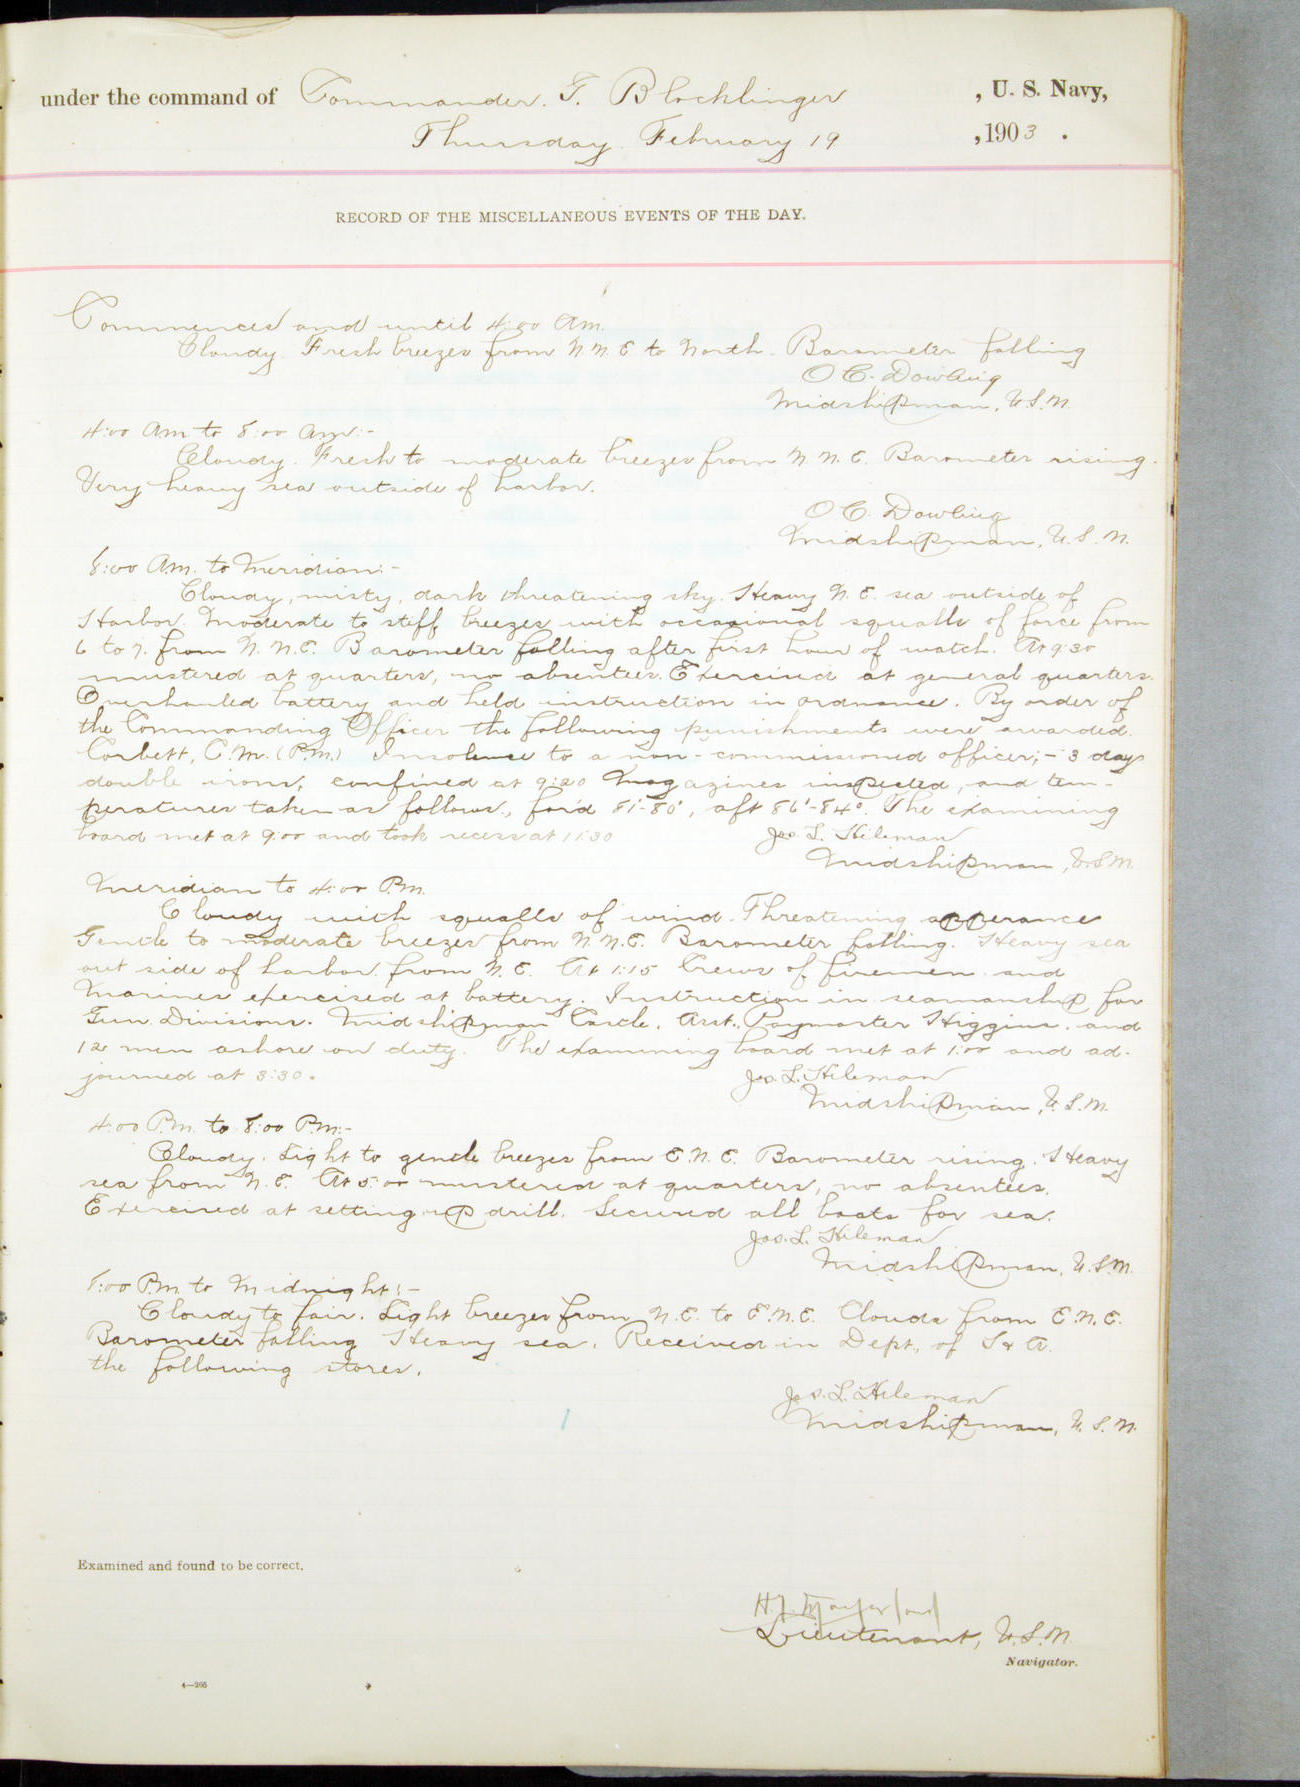 under the command of Commander. G. Blocklinger , U. S. Navy,
Thursday February 19 , 1903 .
RECORD OF THE MISCELLANEOUS EVENTS OF THE DAY.
Commences and until 4:00 Am.
Cloudy. Fresh breezes from N.N.E to North. Barometer falling
O C. Dowling
Midshipman, U.S.N.
4:00 Am to 8:00 Am:-
Cloudy. Fresh to moderate breezes from N.N.E. Barometer rising.
Very heavy sea outside of harbor.
O C. Dowling
Midshipman, U.S.N.
8:00 A.m. to Meridian:-
Cloudy, misty, dark threatening sky. Heavy N.E. sea outside of
Harbor. Moderate to stiff breezes with occasional squalls of force from
6 to 7. from N.N.E. Barometer falling after first hour of watch. At 9:30
mustered at quarters, no absentees. Exercised at general quarters.
Overhauled battery and held instruction in ordnance. By order of
the Commanding Officer the following punishments were awarded.
Corbett, C.M. (P.M.) Insolence to a non-commissioned officer;- 3 days
double irons, confined at 9:20 Magazines inspected, and tem-
peratures taken as follows, for'd 81°-80°, aft 86°-84°. The examining
board met at 9:00 and took recess at 11:30
Jos. L. Hileman
Midshipman, U.S.N.
Meridian to 4:00 P.M.
Cloudy with squalls of wind. Threatening apperance
Gentle to moderate breezes from N.N.E. Barometer falling. Heavy sea
out side of harbor from N.E. At 1:15 Crews of firemen and
Marines exercised at battery. Instruction in seamanship for
Gun Divisions. Midshipman Castle, Asst., Paymaster Higgins, and
12 men ashore on duty. The examining board met at 1:00 and ad-
journed at 3:30.
Jos. L. Hileman
Midshipman, U.S.N.
4:00 P.M. to 8:00 P.M:-
Cloudy. Light to gentle breezes from E.N.E. Barometer rising. Heavy
sea from N.E. At 5:00 mustered at quarters, no absentees.
Exercised at setting up drill. Secured all boats for sea.
Jos. L. Hileman
Midshipman, U.S.N.
8:00 P.M. to Midnight:-
Cloudy to fair. Light breezes from N.E. to E.N.E. Clouds from E.N.E.
Barometer falling Heavy sea. Received in Dept., of S & A.
the following stores.
Jos. L. Hileman
Midshipman, U.S.N.
Examined and found to be correct.
Lieutenant, U.S.N.
Navigator.
4—205